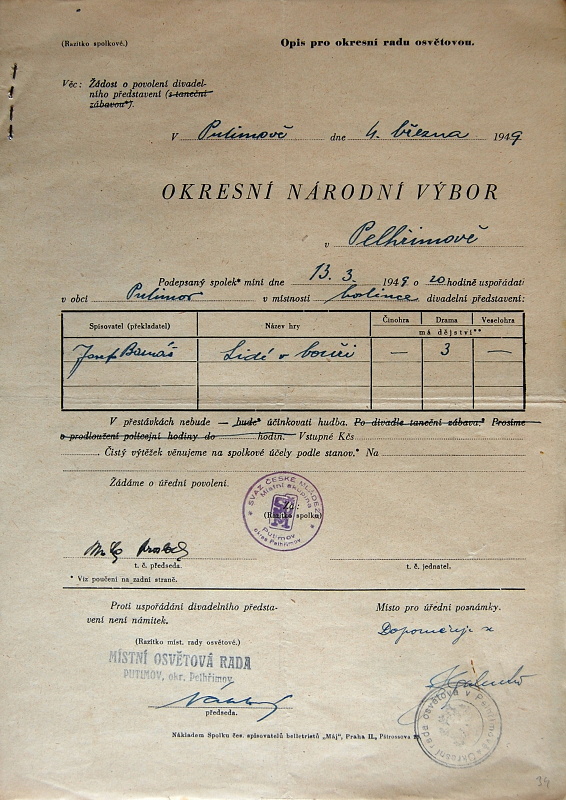 (Razítko spolkové.)
Opis pro okresní radu osvětovou.
Věc: Žádost o povolení divadel-
ního představení (s taneční
zábavou*).
V Putimově dne 4. března 1949
OKRESNÍ NÁRODNÍ VÝBOR
v Pelhřimově
Podepsaný spolek* míní dne 13. 3. 1949 o 20 hodině uspořádati
v obci Putimov v místnosti hostince divadelní představení:
Spisovatel (překladatel) Název hry Činohra Drama Veselohra
má dějství**
Josef Lidé v bouři — 3 —
V přestávkách nebude — bude* účinkovati hudba. Po divadle taneční zábava.* Prosíme
o prodloužení policejní hodiny do hodin. Vstupné Kčs
Čistý výtěžek věnujeme na spolkové účely podle stanov.* Na
Žádáme o úřední povolení.
SVAZ ČESKÉ MLÁDEŽE
Místní skupina
Za:
(Razítko spolku)
SM
Putimov
okres Pelhřimov
t. č. předseda. t. č. jednatel.
* Viz poučení na zadní straně.
Proti uspořádání divadelního předsta-
vení není námitek.
Místo pro úřední poznámky.
Doporučuje se
(Razítko míst. rady osvětové.)
MÍSTNÍ OSVĚTOVÁ RADA
PUTIMOV, okr. Pelhřimov
předseda.
Okresní rada osvětová v Pelhřimově
Nákladem Spolku čes. spisovatelů beletristů „Máj", Praha II., Pštrossova
34